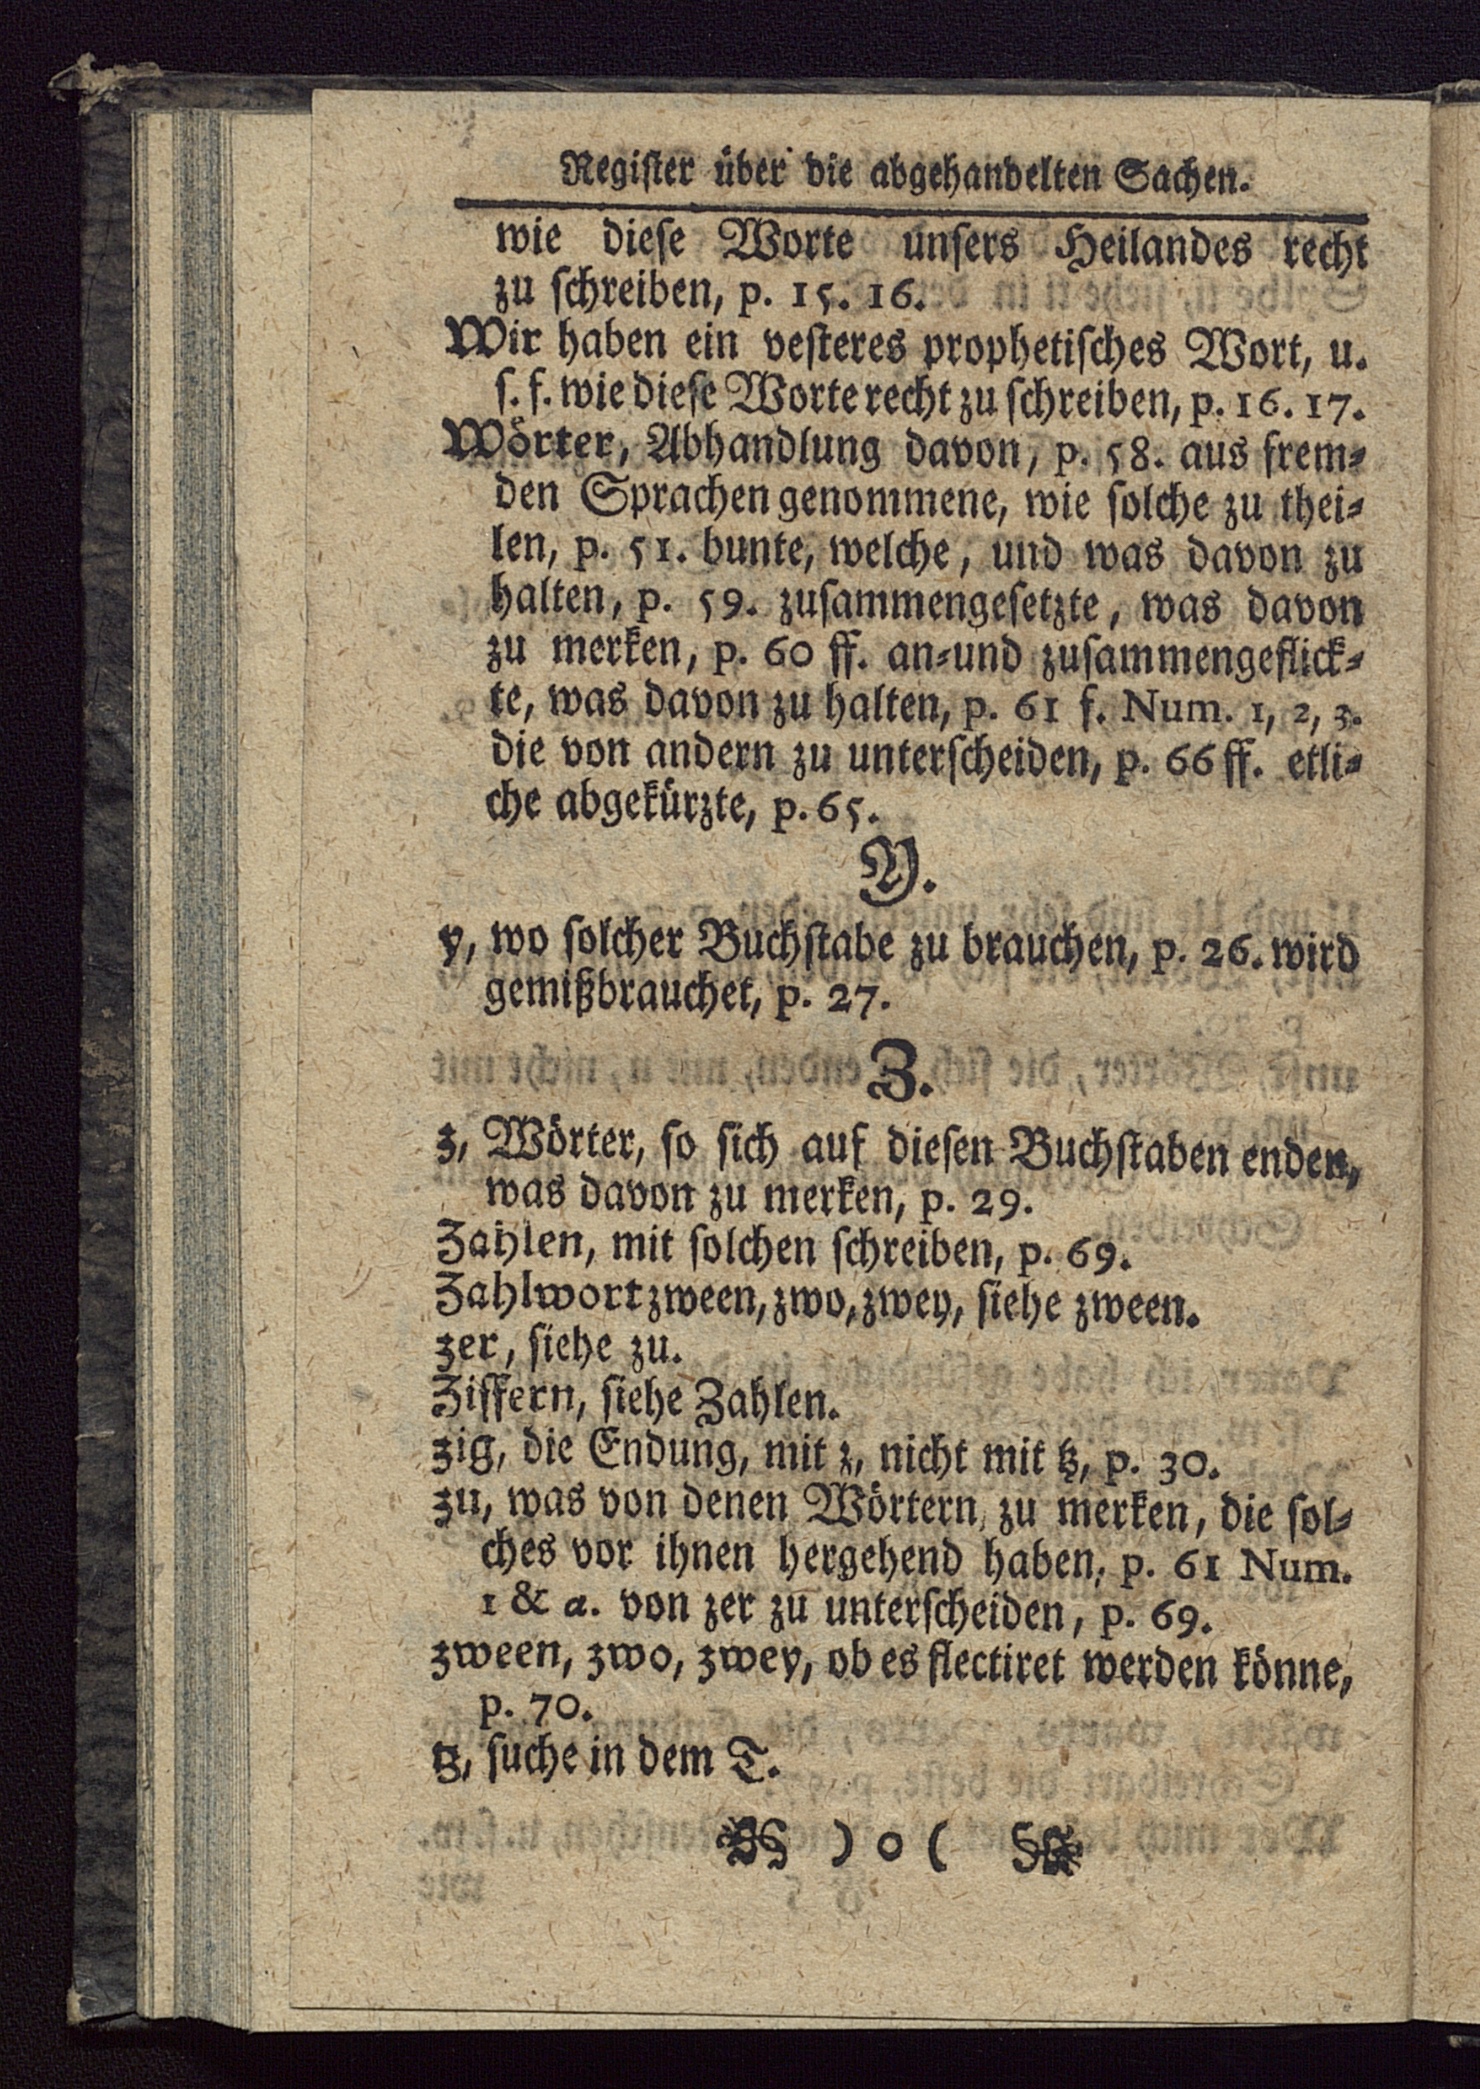 Register über die abgehandelten Sachen.
wie diese Worte unsers Heilandes recht
zu schreiben, p. 15. 16.
Wir haben ein vesteres prophetisches Wort, u.
s. f. wie diese Worte recht zu schreiben, p. 16. 17.
Wörter, Abhandlung davon, p. 58. aus frem-
den Sprachen genommene, wie solche zu thei-
len, p. 51. bunte, welche, und was davon zu
halten, p. 59. zusammengesetzte, was davon
zu merken, p. 60 ff. an-und zusammengeflick-
te, was davon zu halten, p. 61 f. Num. 1, 2, 3.
die von andern zu unterscheiden, p. 66 ff. etli-
che abgekürzte, p. 65.
Y.
y, wo solcher Buchstabe zu brauchen, p. 26. wird
gemißbrauchet, p. 27.
Z.
z, Wörter, so sich auf diesen Buchstaben enden,
was davon zu merken, p. 29.
Zahlen, mit solchen schreiben, p. 69.
Zahlwort zween, zwo, zwey, siehe zween.
zer, siehe zu.
Ziffern, siehe Zahlen.
zig, die Endung, mit z, nicht mit tz, p. 30.
zu, was von denen Wörtern zu merken, die sol-
ches vor ihnen hergehend haben, p. 61 Num.
1 & a. von zer zu unterscheiden, p. 69.
zween, zwo, zwey, ob es flectiret werden könne,
p. 70.
tz, suche in dem T.
) o (